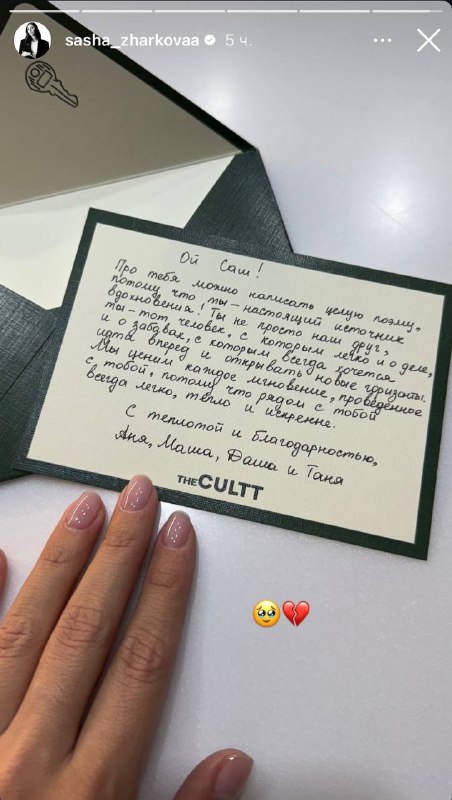 sasha_zharkovaa 5 ч.
Ой Саш!
Про тебя можно написать целую поэму,
потому что, ты – настоящий источник
вдохновения! Ты не просто наш друг,
ты – тот человек, с которым легко и о деле,
и о забавах, с которым всегда хочется
идти вперед и открывать новые горизонты.
Мы ценим каждое мгновение, проведенное
с тобой, потому что рядом с тобой
всегда легко, тепло и искренне.
С теплотой и благодарностью,
Аня, Маша, Даша и Таня
THE CULTT
🥹💔